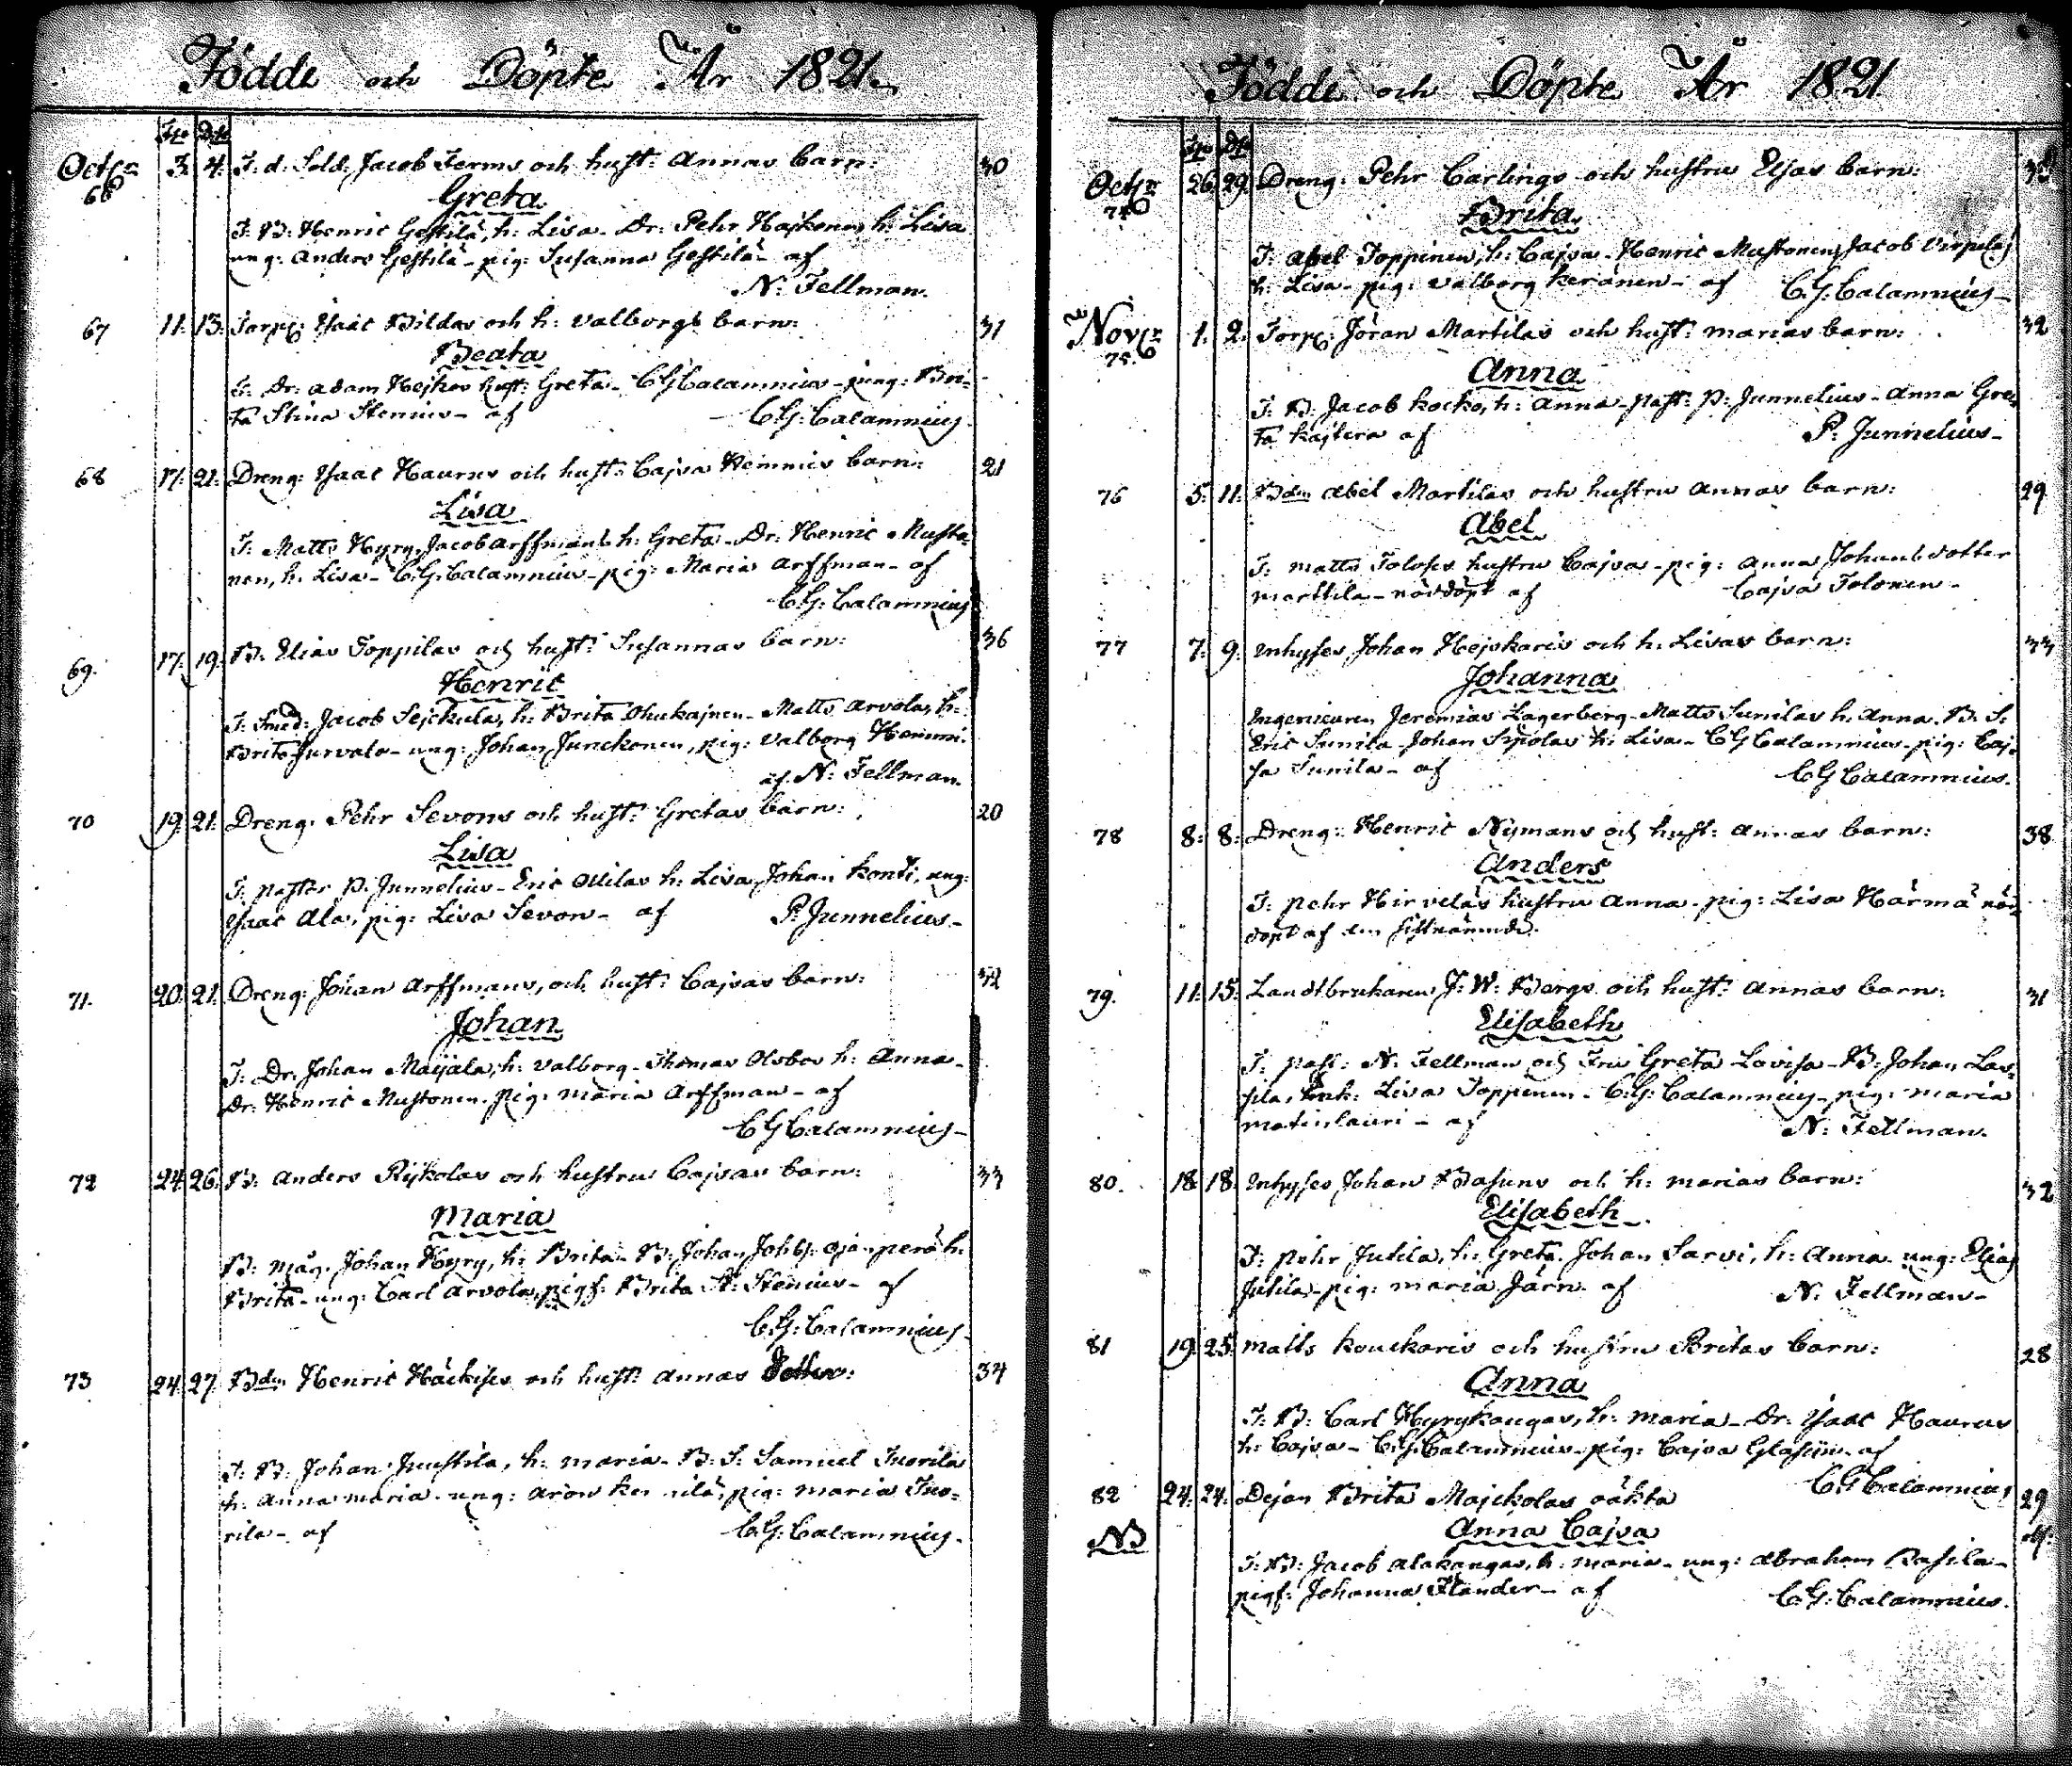 Födde och Döpte År 1821
Octbr 3. 4. F. d. Sold. Jacob Ferms och hust: Annas barn: 30
66 Greta
T: B: Henric Gestilä, h: Lisa. Dr: Pehr Hajkonen h: Lisa
ung: Anders Gestilä - pig: Susanna Gestilä - af
N: Fellman.
67 11. 13. Torp: Isaac Bildas och h: Valborgs barn: 31
Beata
T: Dr: Adam Hejkos hust: Greta - CGCalamnius - jung: Bri-
ta Stina Stenius - af C:G: Calamnius
68 17. 21. Dreng: Isaac Haurus och hust: Cajsa Kemmis barn: 21
Lisa
T: Matts Hyry, Jacob Arffmans h: Greta - Dr: Henric Musto-
nen, h: Lisa - C:G: Calamnius - pig: Maria Arffman - af
C:G: Calamnius
69. 17. 19. B: Elias Toppilas och hust: Susannas barn: 36
Henric
T: Smed: Jacob Sejckula, h: Brita Ohukajnen - Matts Arvola, h:
Brita Jurvala - ung: Johan Junckonen, pig: Valborg
af N: Fellman.
70 19. 21. Dreng: Pehr Sevons och hust: Gretas barn: 20
Lisa
T: Pastor P: Junnelius - Eric Ollilas h: Lisa, Johan Konti, ung:
Isaac Ala, pig: Lisa Sevon - af P: Junnelius -
71. 20. 21. Dreng: Johan Arffmans, och hust: Cajsas barn: 32
Johan
T: Dr: Johan Maijala, h: Valborg - Thomas Olsbos h: Anna -
Dr: Henric Mustonen. pig: Maria Arffman - af
C G Calamnius -
72 24. 26. B: Anders Rijkolas och hustru Cajsas barn: 33
Maria
B: måg. Johan Hyry, h: Brita - B: Johan Johss: Ojanperä h:
Brita - ung: Carl Arvola, pigf: Brita St: Stenius - af
C:G: Calamnius -
73 24. 27. Bdn Henric Häckises och hust: Annas 34
T: B: Johan Juustila, h: Maria - B: S: Samuel Tuorila
h: Anna Maria - ung: Aron pig: Maria Tuo-
rila - af C:G: Calamnius -
Födde och Döpte År 1821
Octbr 26. 29. Dreng: Pehr Carlings och hustru Elsas barn:
74 Brita
T: Abel Toppinen, h: Cajsa - Henric Mustonen, Jacob Virpelas
h: Lisa - pig: Valborg Keränen - af C.G. Calamnius -
Novbr 1. 2. Torp: Jöran Martilas och hust: Marias barn: 32
75. Anna
T: B: Jacob Kocko, h: Anna - past: P: Junnelius - Anna Gre-
ta Kajtera af P: Junnelius -
76 5. 11. Bdn Abel Martilas och hustru Annas barn: 29
Abel
T: Matts Toloses hustru Cajsa - pig: Anna Johansdotter
Marttila - nöddöpt af Cajsa Tolonen -
77 7. 9. Inhyses Johan Hejskaris och h: Lisas barn: 33
Johanna
Ingenieuren Jeremias Lagerberg - Matts Sunilas h: Anna. B: S:
Eric Sunila. Johan Sipolas h: Lisa - C G Calamnius - pig: Caj-
sa Sunila - af C G Calamnius.
78 8. 8. Dreng: Henric Nymans och hust: Annas barn: 38
Anders
T: Pehr Hirveläs hustru Anna - pig: Lisa Härmä nöd-
döpt af den sistnämnde.
79. 11. 15. Landtbrukaren J: W: Bergs och hust: Annas barn: 31
Elisabeth
T: past: N: Fellman och Fru Greta Lovisa - B: Johan Las-
sila, Enk: Lisa Toppinen - C:G: Calamnius - pig: Maria
Matinlauri - af N: Fellman.
80. 18. 18. Inhyses Johan Basuns och h: Marias barn: 32
Elisabeth
T: Pehr Jutila, h: Greta. Johan Sarvi, h: Anna. ung: Elias
Jutila - pig: Maria Järn. af N: Fellman -
81 19. 25. Matts Kouckaris och hustru Britas barn: 28
Anna
T: B: Carl Hyrykangas, h: Maria - Dr: Isaac Haurus
h: Cajsa - C:G: Calamnius - pig: Cajsa af
C:G Calamnius
82 24. 24. Dejan Brita Majckolas oäkta 29
NB Anna Cajsa
T: B: Jacob Alakangas, h: Maria - ung: Abraham Rasila -
pigf: Johanna Flander - af C:G: Calamnius.